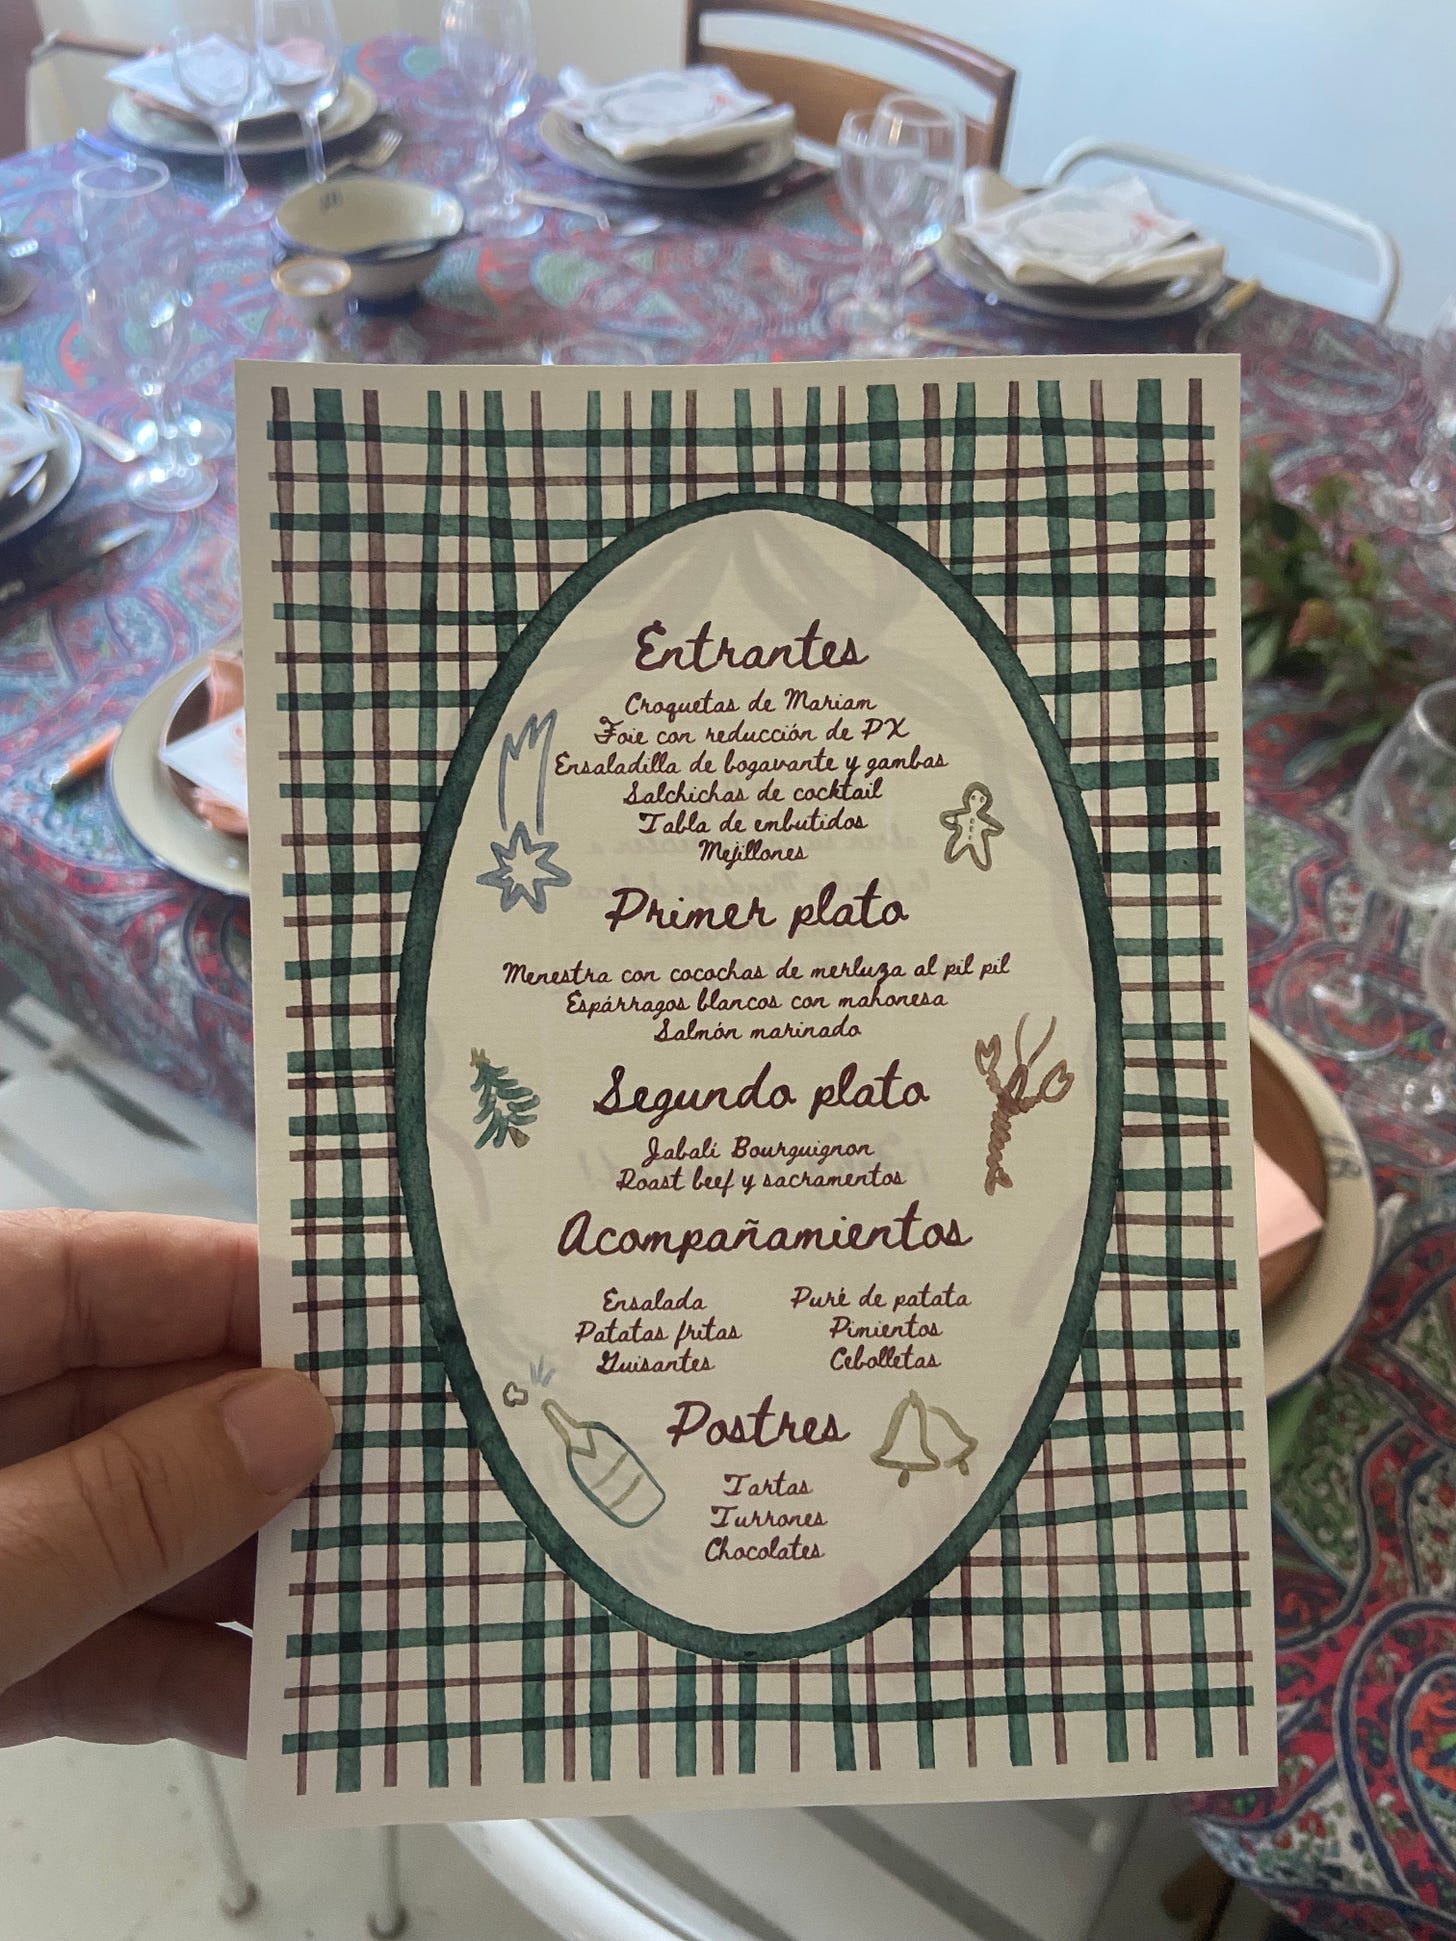 Entrantes
Croquetas de Mariam
Foie con reducción de PX
Ensaladilla de bogavante y gambas
Salchichas de cocktail
Tabla de embutidos
Mejillones
Primer plato
Menestra con cocochas de merluza al pil pil
Espárragos blancos con mahonesa
Salmón marinado
Segundo plato
Jabalí Bourguignon
Roast beef y sacramentos
Acompañamientos
Ensalada
Patatas fritas
Guisantes
Puré de patata
Pimientos
Cebolletas
Postres
Tartas
Turrones
Chocolates